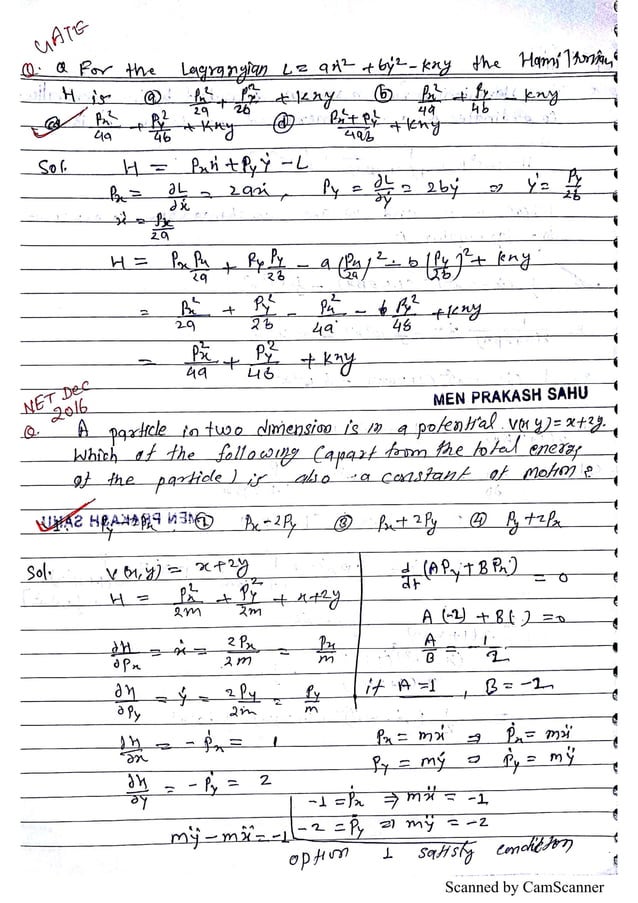 GATE
Q. Q For the Lagrangian L = ax² + bẏ² - kxy the Hamiltonian
H is (a) Px²/2a + Py²/2b + kxy (b) Px²/4a + Py/4b - kxy
Px²/4a + Py²/4b + kxy (d) Px² + Py²/4ab + kxy
Sol. H = Pxẋ + Pyẏ - L
Px = ∂L/∂ẋ = 2aẋ, Py = ∂L/∂ẏ = 2bẏ ⇒ ẏ = Py/2b
ẋ = Px/2a
H = PxPx/2a + PyPy/2b - a(Px/2a)² - b(Py/2b)² + kxy
= Px²/2a + Py²/2b - Px²/4a - b Py²/4b + kxy
= Px²/4a + Py²/4b + kxy
NET Dec
2016
MEN PRAKASH SAHU
Q. A particle in two dimension is in a potential V(x y) = x+2y.
Which of the following (apart from the total energy
of the particle) is also a constant of motion?
MEN PRAKASH SAHU
② Px-2Py ③ Px+2Py ④ Py+2Px
Sol. V(x,y) = x+2y
H = Px²/2m + Py²/2m + x+2y
∂H/∂Px = ẋ = 2Px/2m = Px/m
∂H/∂Py = ẏ = 2Py/2m = Py/m
d/dt (APy + BPx) = 0
A(-2) + B( ) = 0
A/B = -1/2
if A=1, B=-2
∂H/∂x = -Ṗx = 1
Px = mẋ ⇒ Ṗx = mẍ
Py = mẏ ⇒ Ṗy = mÿ
∂H/∂y = -Ṗy = 2
-1 = Ṗx ⇒ mẍ = -1
-2 = Ṗy ⇒ mÿ = -2
mÿ - mẍ = -1
option 1 satisfy condition
Scanned by CamScanner